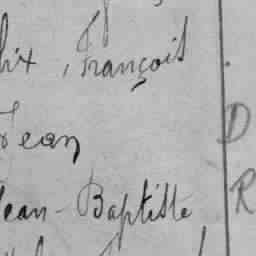 , François
Jean D
Jean-Baptiste R